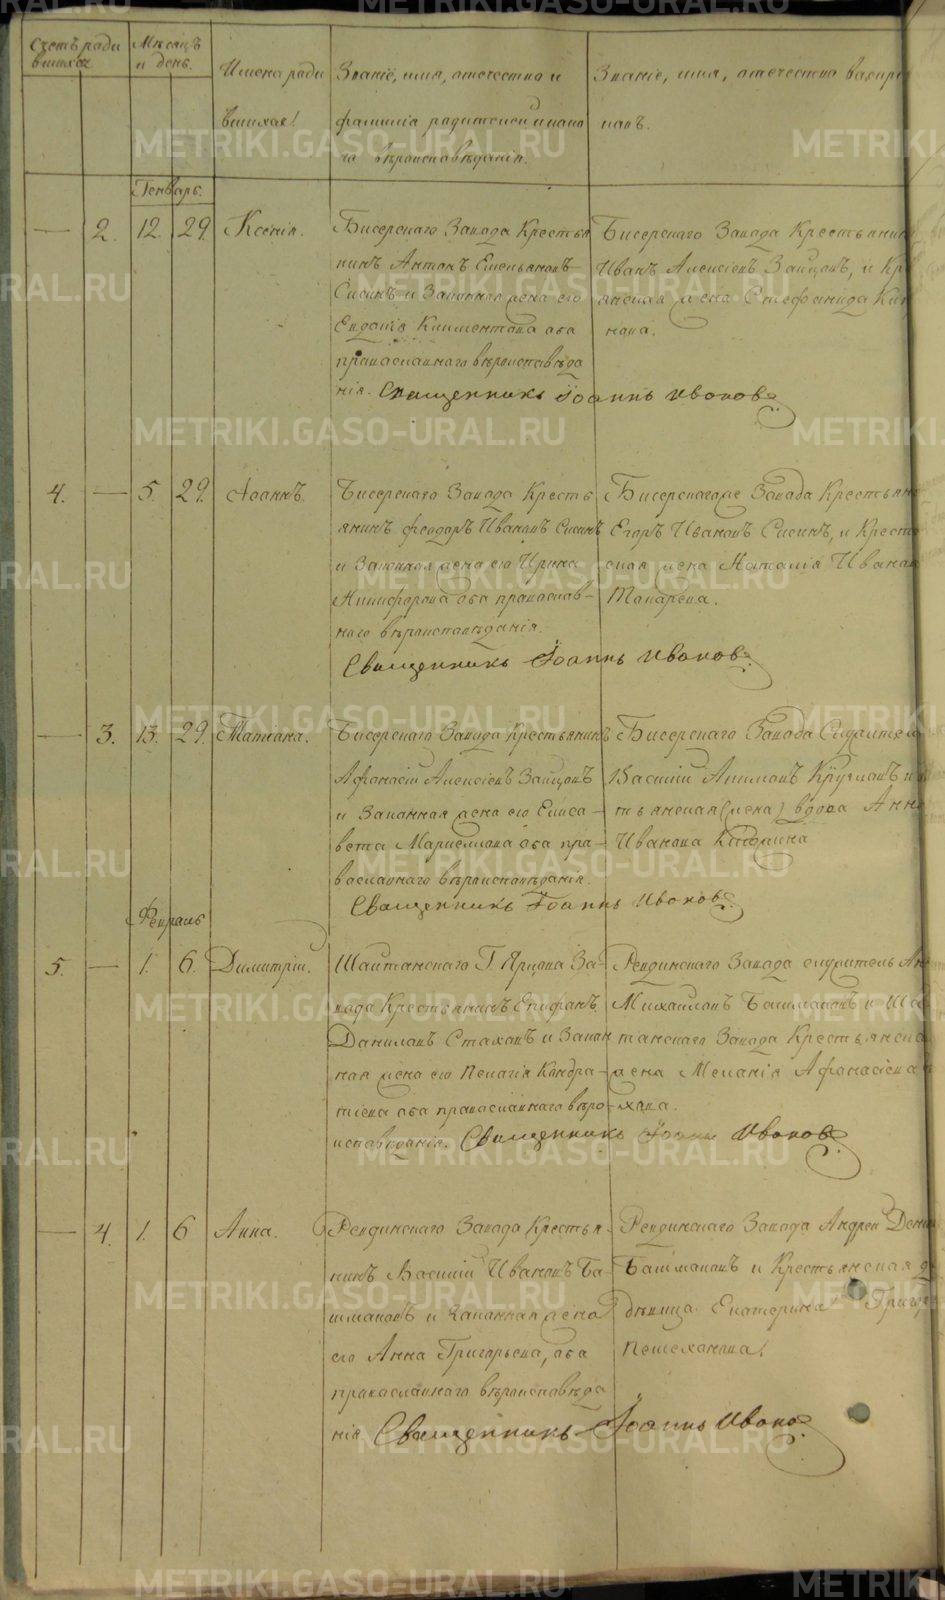 Счетъ ради
вшихся
Мѣсяцъ
и день.
Имена роди
вшихся!
Званіе, имя, отчество и
фамилія родителей и како
го вѣроисповѣданія.
Званіе, имя, отечество воспри
никовъ.
Генварь.
2. 12. 29. Ксенія.
Бисерскаго Завода Крестья
нинъ Антонъ Емельяновъ
Сисинъ и Законная жена его
Евдокія Климентова оба
православнаго вѣроисповѣда
нія. Священникъ Іоаннъ Ивановъ
Бисерскаго Завода Крестьянинъ
Иванъ Алексіевъ Зайцовъ, и Кр
янская жена Стефанида
нова.
4. 5. 29. Іоаннъ.
Бисерскаго Завода Кресть
янинъ Феодоръ Ивановъ Сисинъ
и Законная жена его Ирина
Никифорова оба православ-
наго вѣроисповѣданія.
Священникъ Іоаннъ Ивановъ
Бисерскагоже Завода Крестьяни
Егоръ Ивановъ Сисинъ, и Кресть
ская жена Наталія Иванова
Токарева.
3. 13. 29. Татіана.
Бисерскаго Завода Крестьянинъ
Афанасій Алексіевъ Зайцовъ
и Законная жена его Елиса-
вета Маркеллова оба пра-
вославнаго вѣроисповѣданія.
Священникъ Іоаннъ Ивановъ
Бисерскаго Завода Служитель
Василій
тьянская (жена) вдова Анна
Иванова
Февраль
5. 1. 6. Димитрій.
Шайтанскаго Г. Ярцова За-
вода Крестьянинъ Епифанъ
Даниловъ Стаховъ и Закон
ная жена его Пелагія Кондра-
тіева оба православнаго вѣро-
исповѣданія. Священникъ Іоаннъ Ивановъ
Ревдинскаго Завода служитель
Михайловъ Башмаковъ и Шай
танскаго Завода Крестьянска
жена Меланія Афанасіева
хова.
4. 1. 6 Анна.
Ревдинскаго Завода Крестья-
нинъ Василій Ивановъ Ба-
шмаковъ и законная жена
его Анна Григорьева, оба
православнаго вѣроисповѣда
нія Священникъ Іоаннъ Ивано
Ревдинскаго Завода Андрей Дени
Башмаковъ и Крестьянская
дѣвица Екатерина Григорь
Пешехонова!
METRIKI.GASO-URAL.RU